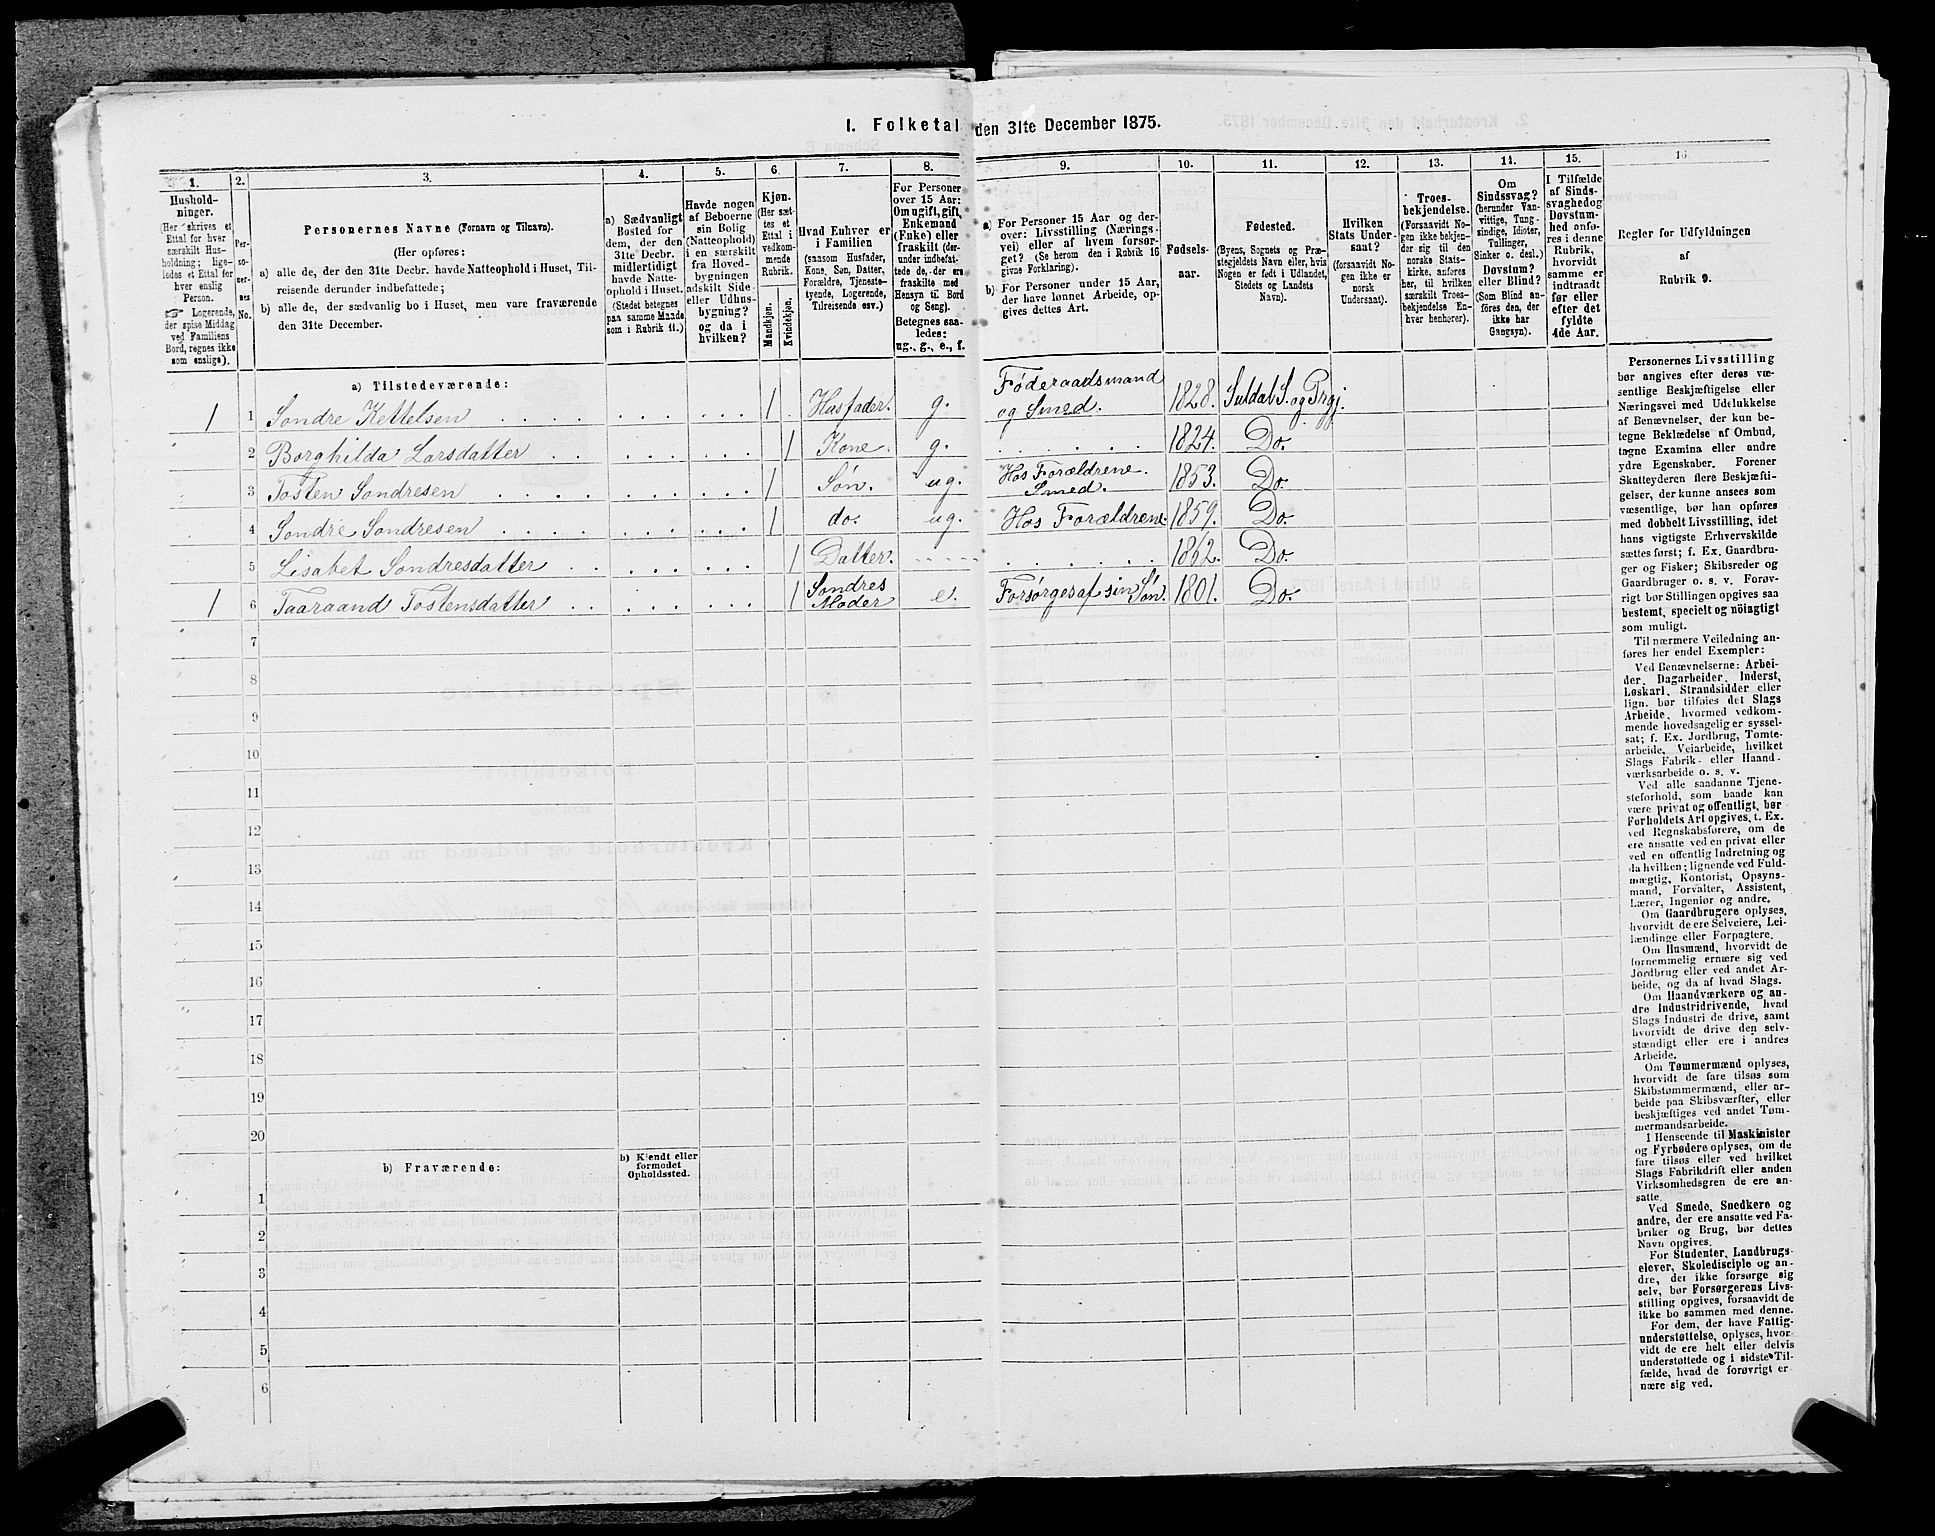 1. Folketal den 31te December 1875.
1.
2.
3.
4.
5.
6.
7.
8.
9.
10.
11.
12.
13.
14.
15.
16.
Hushold-
ninger.
(Her skrives et
Ettal for hver
særskilt Hus-
holdning; lige-
ledes et Ettal for
hver enslig
Person.
☞ Logerende,
der spise Middag
ved Familiens
Bord, regnes ikke
som enslige).
Per-
so-
ner-
nes
No.
Personernes Navne (Fornavn og Tilnavn).
(Her opføres:
a) alle de, der den 31te Decbr. havde Natteophold i Huset, Til-
reisende derunder indbefattede;
b) alle de, der sædvanlig bo i Huset, men vare fraværende
den 31te December.
a) Sædvanligt
Bosted for
dem, der den
31te Decbr.
midlertidigt
havde Natte-
ophold i Huset.
(Stedet betegnes
paa samme Maade
som i Rubrik 11.)
Havde nogen
af Beboerne
sin Bolig
(Natteophold)
i en særskilt
fra Hoved-
bygningen
adskilt Side-
eller Udhus-
bygning?
og da i
hvilken?
Kjøn.
(Her sæt-
tes et
Ettal i
vedkom-
mende
Rubrik.
Mandkjøn.
Kvindekjøn.
Hvad Enhver er
i Familien
(saasom Husfader,
Kone, Søn, Datter,
Forældre, Tjeneste-
tyende, Logerende,
Tilreisende osv.)
For Personer
over 15 Aar:
Om ugift, gift,
Enkemand
(Enke) eller
fraskilt (der-
under indbefat-
tede de, der ere
fraskilte med
Hensyn til Bord
og Seng).
Betegnes saa-
ledes:
ug., g., e., f.
a) For Personer 15 Aar og der-
over: Livsstilling (Nærings-
vei) eller af hvem forsør-
get? (Se herom den i Rubrik 16
givne Forklaring).
b) For Personer under 15 Aar,
der have lønnet Arbeide, op-
gives dettes Art.
Fødsels-
aar.
Fødested.
(Byens, Sognets og Præ-
stegjeldets Navn eller, hvis
Nogen er født i Udlandet,
Stedets og Landets
Navn).
Hvilken
Stats Under-
saat?
(forsaavidt No-
gen ikke er
norsk
Undersaat).
Troes-
bekjendelse.
(Forsaavidt No-
gen ikke bekjen-
der sig til den
norske Stats-
kirke, anføres
her, til hvilken
særskilt Troes-
bekjendelse En-
hver henhører).
Om
Sindssvag?
(herunder Van-
vittige, Tung-
sindige, Idioter,
Tullinger,
Sinker o. desl.)
Døvstum?
eller Blind?
(Som Blind an-
føres den, der
ikke har
Gangsyn).
I Tilfælde
af Sinds-
svaghed og
Døvstum-
hed anfø-
res i denne
Rubrik,
hvorvidt
samme er
indtraadt
før eller
efter det
fyldte
4de Aar.
Regler for Udfyldningen
af
Rubrik 9.
a) Tilstedeværende:
1 1 Sondre Kettelsen 1 Husfader. g. Føderaadsmand og Smed. 1828. Suldal S. og Prgj.
2 Borghilda Larsdatter 1 Kone. g. 1824. Do.
3 Tosten Sondresen 1 Søn. ug. Hos Forældrene. Smed. 1853. Do.
4 Sondre Sondresen 1 do. ug. Hos Forældrene. 1859. Do.
5 Lisabet Sondresdatter 1 Datter. 1862. Do.
1 6 Taaraand Tostensdatter 1 Sondres Moder e. Forsørges af sin Søn. 1801. Do.
7
8
9
10
11
12
13
14
15
16
17
18
19
20
b) Fraværende:
b) Kjendt eller
formodet
Opholdssted.
1
2
3
4
5
6
Personernes Livsstilling
bør angives efter deres væ-
sentlige Beskjæftigelse eller
Næringsvei med Udelukkelse
af Benævnelser, der kun be-
tegne Beklædelse af Ombud,
tagne Examina eller andre
ydre Egenskaber. Forener
Skatteyderen flere Beskjæfti-
gelser, der kunne ansees som
væsentlige, bør han opføres
med dobbelt Livsstilling, idet
hans vigtigste Erhvervskilde
sættes først; f. Ex. Gaardbru-
ger og Fisker; Skibsreder og
Gaardbruger o. s. v. Forøv-
rigt bør Stillingen opgives saa
bestemt, specielt og nöiagtigt
som muligt.
Til nærmere Veiledning an-
føres her endel Exempler:
Ved Benævnelserne: Arbei-
der, Dagarbeider, Inderst,
Løskarl, Strandsidder eller
lign. bør tilføies det Slags
Arbeide, hvormed vedkom-
mende hovedsagelig er syssel-
sat; f. Ex. Jordbrug, Tomte-
arbeide, Veiarbeide, hvilket
Slags Fabrik- eller Haand-
værksarbeide o. s. v.
Ved alle saadanne Tjene-
steforhold, som baade kan
være privat og offentligt, bør
Forholdets Art opgives, t. Ex.
ved Regnskabsførere, om de
ere ansatte ved en privat eller
ved en offentlig Indretning og
da hvilken; lignende ved Fuld-
mægtig, Kontorist, Opsyns-
mand, Forvalter, Assistent,
Lærer, Ingeniør og andre.
Om Gaardbrugere oplyses,
hvorvidt de ere Selveiere, Lei-
lændinge eller Forpagtere.
Om Husmænd, hvorvidt de
fornemmelig ernære sig ved
Jordbrug eller ved andet Ar-
beide, og da af hvad Slags.
Om Haandværkere og an-
dre Industridrivende, hvad
Slags Industri de drive, samt
hvorvidt de drive den selv-
stændigt eller ere i andres
Arbeide.
Om Tømmermænd oplyses,
hvorvidt de fare tilsøs som
Skibstømmermænd, eller ar-
beide paa Skibsværfter, eller
beskjæftiges ved andet Tøm-
mermandsarbeide.
I Henseende til Maskinister
og Fyrbødere oplyses, om de
fare tilsøs eller ved hvilket
Slags Fabrikdrift eller anden
Virksomhedsgren de ere an-
satte.
Ved Smede, Snedkere og
andre, der ere ansatte ved Fa-
briker og Brug, bør dettes
Navn opgives.
For Studenter, Landbrugs-
elever, Skoledisciple og an-
dre, der ikke forsørge sig
selv, bør Forsørgerens Livs-
stilling opgives, forsaavidt de
ikke bo sammen med denne.
For dem, der have Fattig-
understøttelse, oplyses, hvor-
vidt de ere helt eller delvis
understøttede og i sidste Til-
fælde, hvad de forøvrigt er-
nære sig ved.